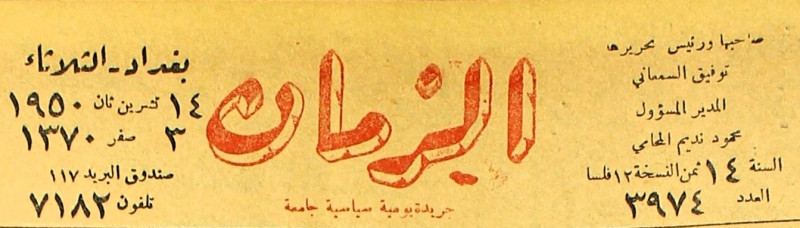 صاحبها ورئيس تحريرها
توفيق السمعاني
المدير المسؤول
محمود نديم المحامي
السنة ١٤ ثمن النسخة ١٢ فلسا
العدد ٣٩٧٤
الزمان
جريدة يومية سياسية جامعة
بغداد - الثلاثاء
١٤ تشرين ثان ١٩٥٠
٣ صفر ١٣٧٠
صندوق البريد ١١٧
تلفون ٧١٨٢